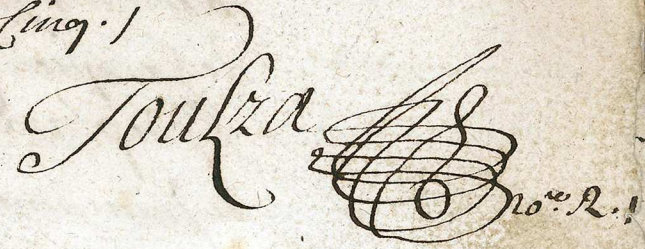 Cinq.
Toulza
no.re R.